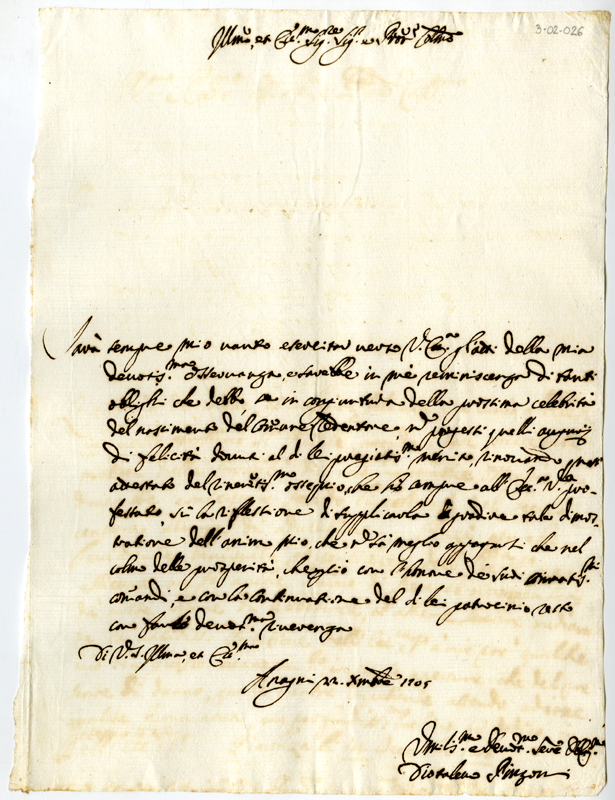 Ill.mo, et Ecc.mo Sig.re Sig.r e Pron Colmo
3-02-026
Sarà sempre mio vanto esercitar verso V. Ecc.a gl'atti della mia
devotis.ma osservanza, e sarebbe in me reminiscenza di tanti
oblighi che debbo se in congiuntura della prossima celebrità
del nascimento del Commune Redentore, n porgesti quelli augurij
di felicità dovuti al di lei pregiatis.mo merito, rinovando
attestato del riverentis.mo ossequio, che hò sempre all'Ecc.a V.ra pro-
festato, sù la riflessione di supplicarla gradire tale dimos-
tratione dell'animo mio, che meglio appagarsi che nel
colmo delle prosperità, che con l'honore de suoi stimatis.mi
comandi, e con la continuatione del di lei patrocinio resto
con devot.ma riverenza
Di V.S. Ill.ma, et Ecc.ma
Anagni 22. Xmbre 1705
Umilis.mo e Devot.mo Serre Oblig.mo